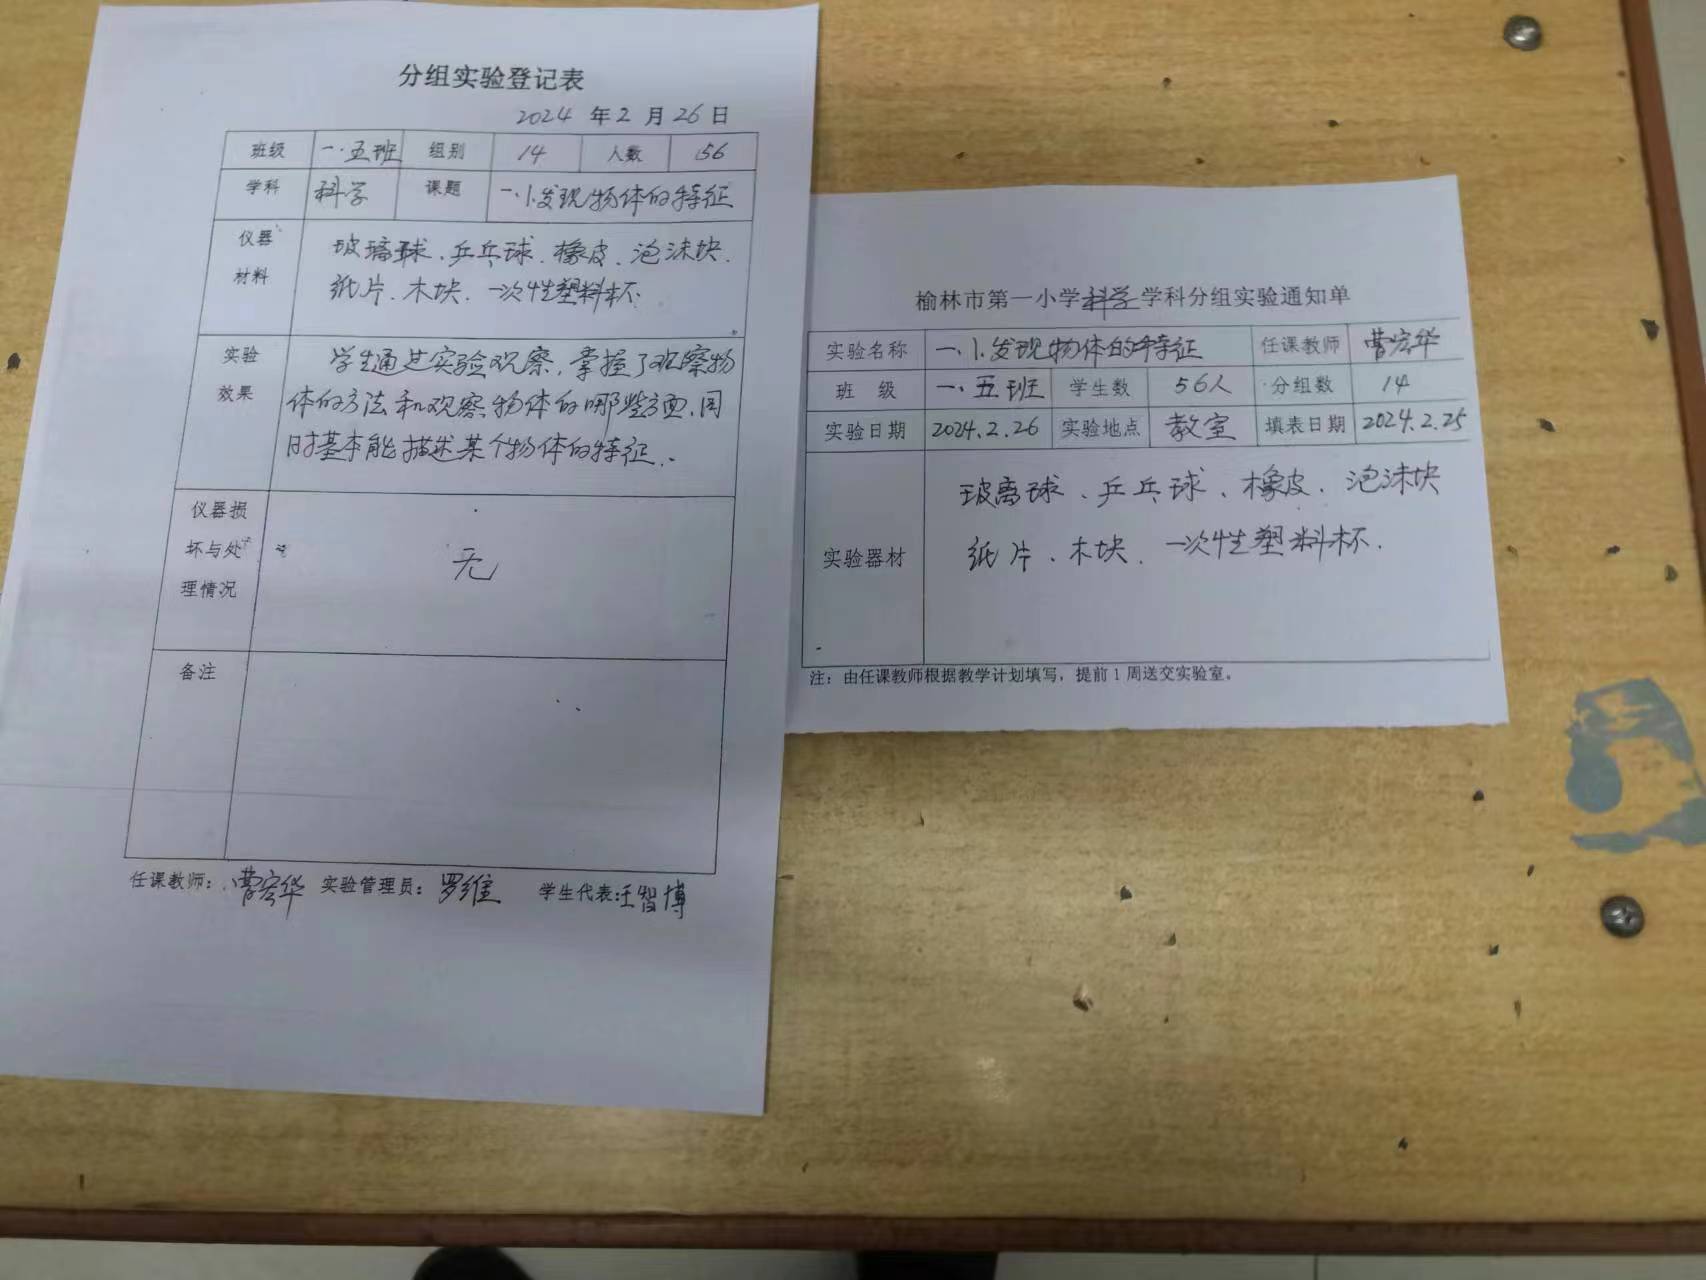 分组实验登记表
2024 年 2 月 26 日
班级 一.五班 组别 14 人数 56
学科 科学 课题 一.1.发现物体的特征
仪器材料 玻璃球、乒乓球、橡皮、泡沫块、
纸片、木块、一次性塑料杯.
实验效果 学生通过实验观察,掌握了观察物
体的方法和观察物体的哪些方面,同
时基本能描述某个物体的特征.
仪器损坏与处理情况 无
备注
任课教师: 曹宏华 实验管理员: 罗维 学生代表:王智博
榆林市第一小学科学学科分组实验通知单
实验名称 一.1.发现物体的特征 任课教师 曹宏华
班 级 一.五班 学生数 56人 分组数 14
实验日期 2024.2.26 实验地点 教室 填表日期 2024.2.25
实验器材 玻离球、乒乓球、橡皮、泡沫块
纸片、木块、一次性塑料杯.
注:由任课教师根据教学计划填写,提前1周送交实验室。